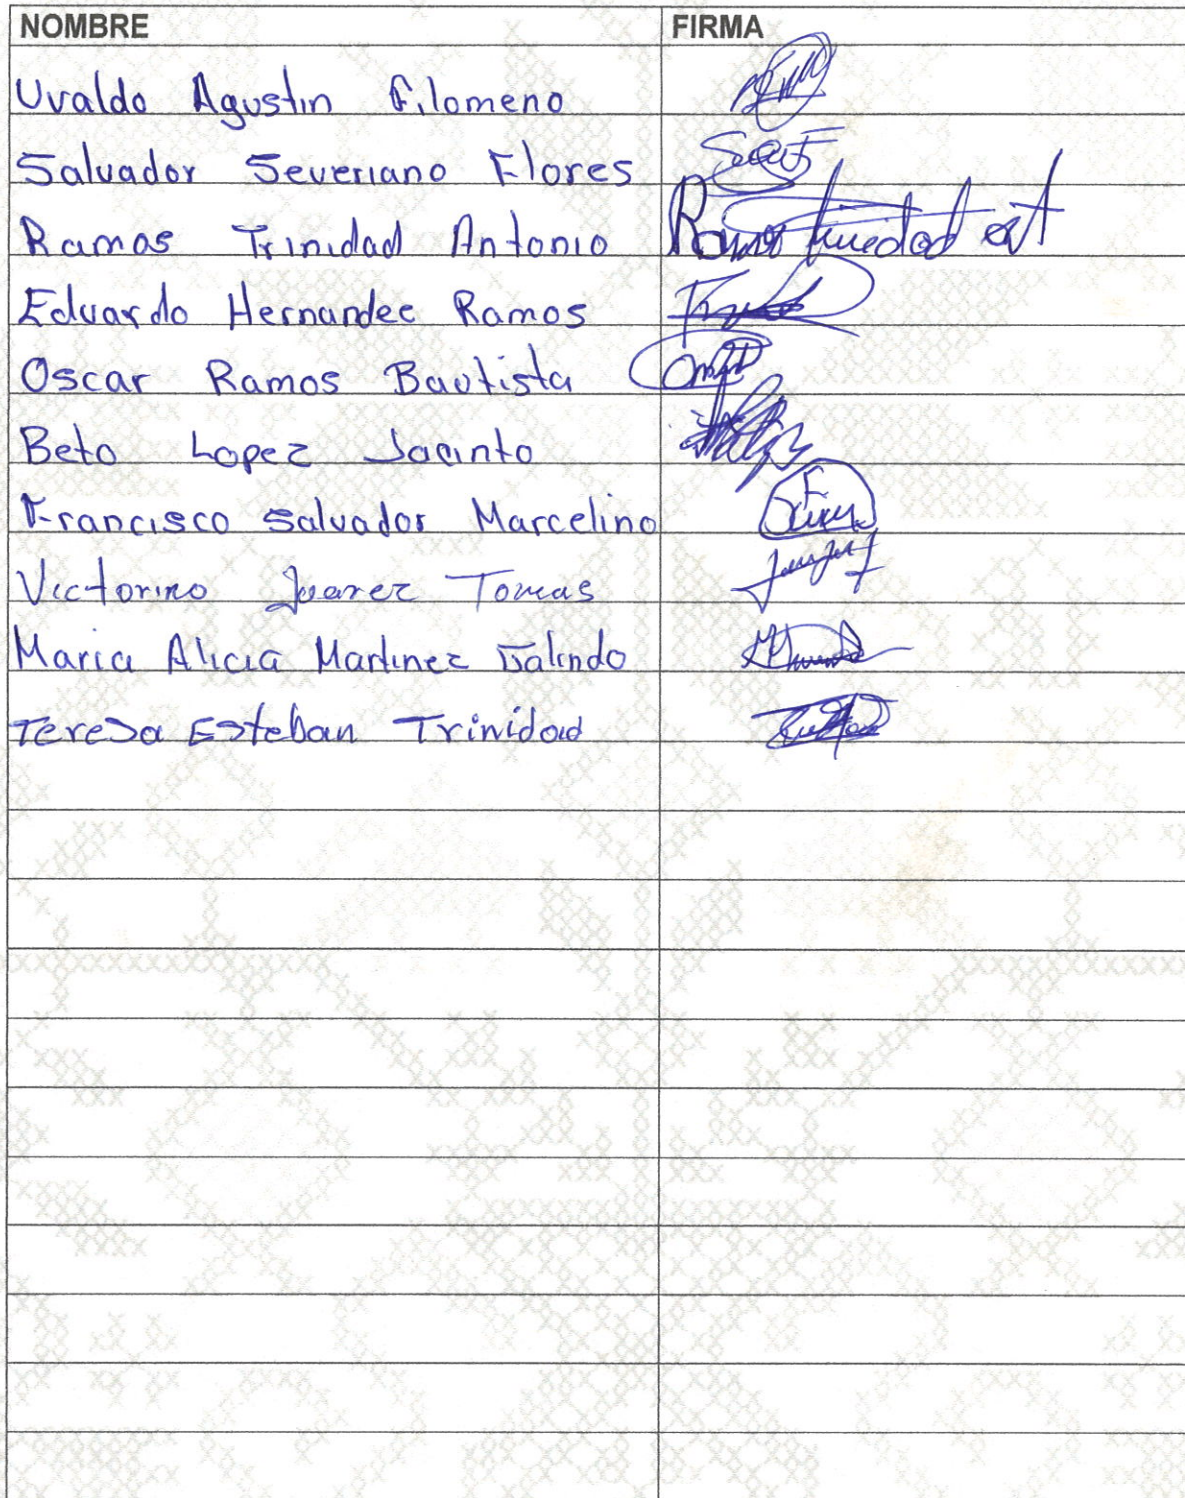 NOMBRE FIRMA
Uvaldo Agustin Filomeno
Salvador Severiano Flores
Ramos Trinidad Antonio Ramos Trinidad
Eduardo Hernandec Ramos
Oscar Ramos Bautista
Beto Lopez Jacinto
Francisco Salvador Marcelino
Victorino Juarez Tomas
Maria Alicia Martinez Galindo
Teresa Esteban Trinidad